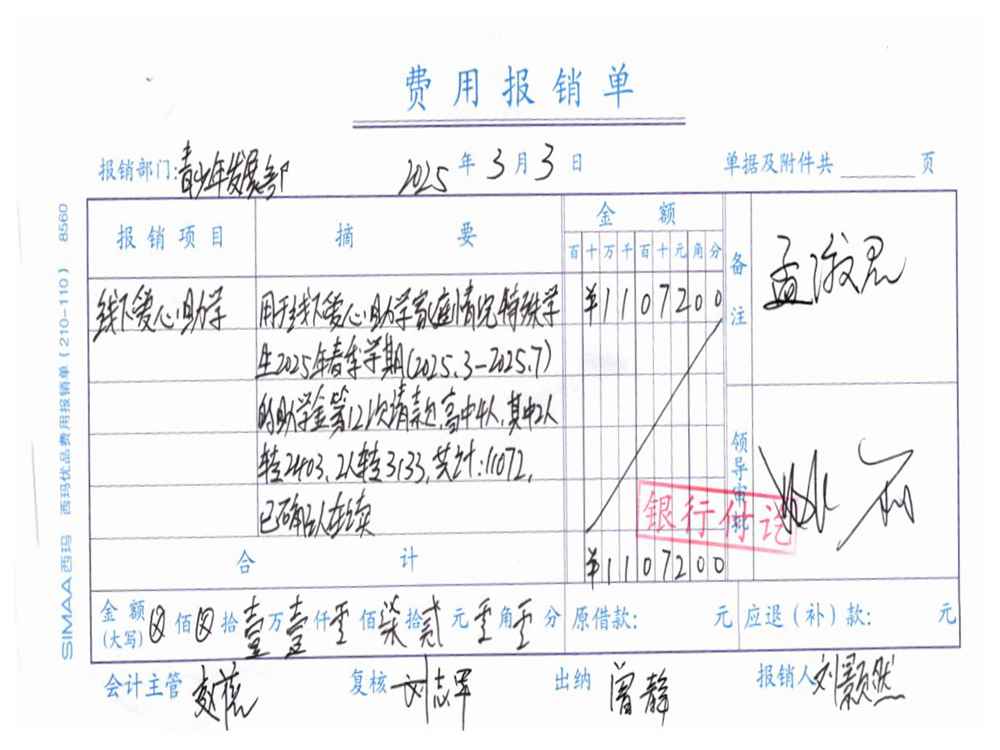 费用报销单
报销部门:青少年发展部 2025年3月3日 单据及附件共 页
报销项目 摘要 金额 备注 孟
百十万千百十元角分
线下爱心助学 用于线下爱心助学家庭情况特殊学 ¥1107200
生2025年春季学期(2025.3-2025.7)
的助学金第12次请款,高中4人,其中2人
转2403,2人转3133,共计:11072,
已确认在读
领导审批
银行付讫
合计 ¥1107200
金额(大写) 佰 拾壹万壹仟零佰柒拾贰元零角零分 原借款: 元 应退(补)款: 元
会计主管 赵 复核 刘志军 出纳 曾静 报销人 刘颢然
SIMAA西玛 西玛优品费用报销单(210-110) 8560